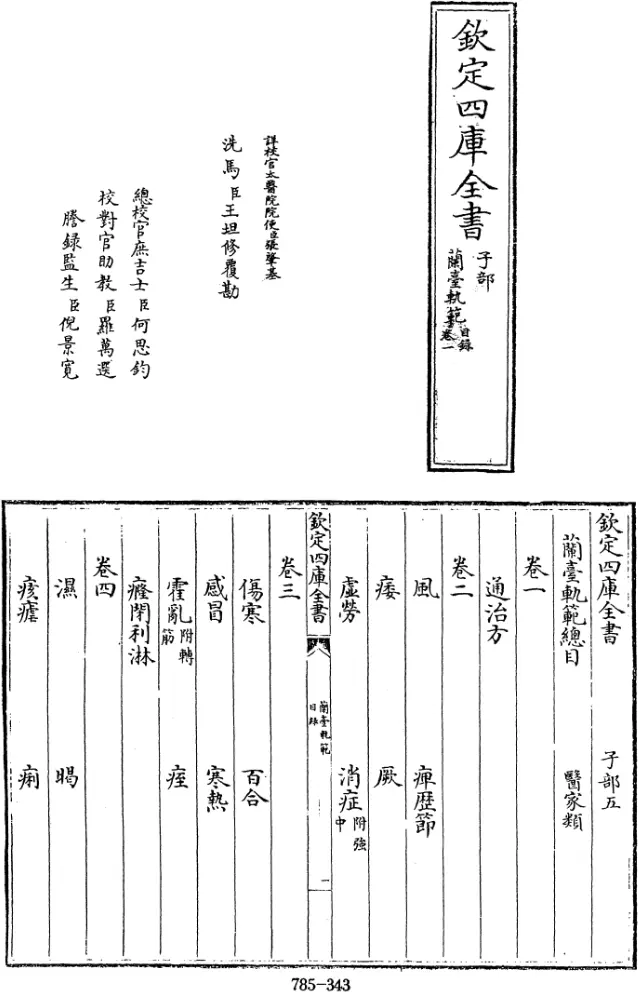 欽定四庫全書
子部
蘭臺軌範
目錄
卷一
詳校官太醫院院使臣張肇基
洗馬臣王坦修覆勘
總校官庶吉士臣何思鈞
校對官助教臣羅萬選
謄錄監生臣倪景寬
欽定四庫全書 子部五
蘭臺軌範總目 醫家類
卷一
通治方
卷二
風 痺歷節
痿 厥
虛勞 消症附強中
欽定四庫全書 蘭臺軌範目錄 一
卷三
傷寒 百合
感冒 寒熱
霍亂附轉筋 痓
癃閉利淋
卷四
濕 暍
痎瘧 痢
785-343